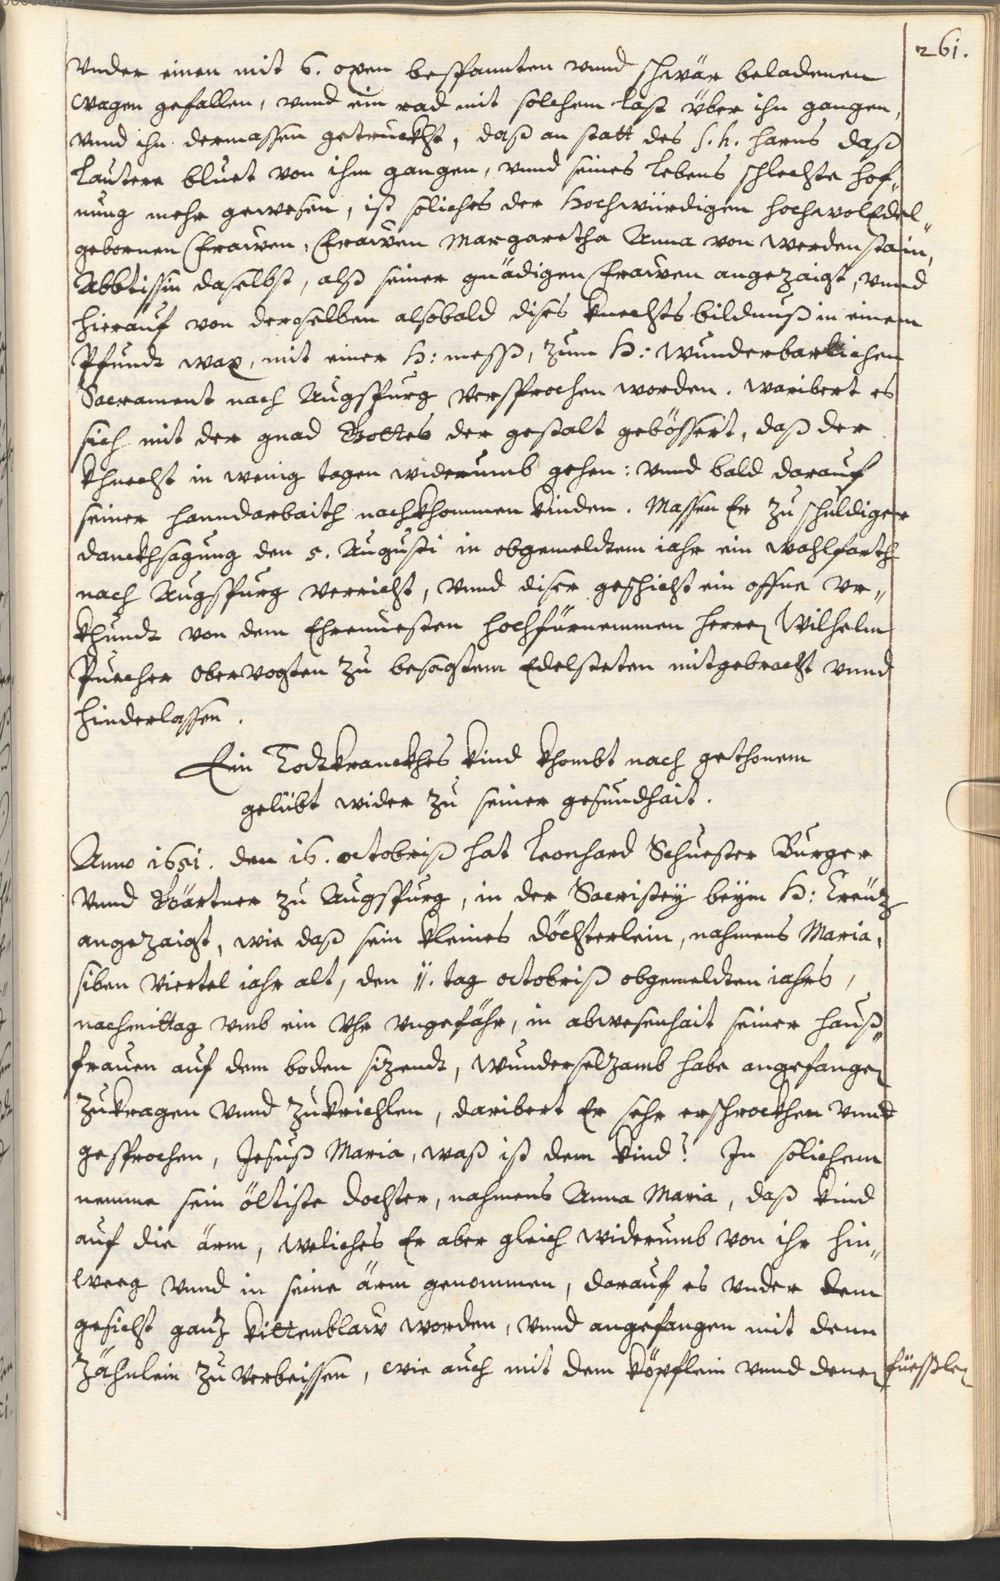 261.
vnder einen mit 6. oxen bespannten vnnd schwär beladenen
wagen gefallen, vnnd ein rad mit solchem last über ihn gangen,
vnnd ihn dermassen getruckht, daß an statt des s. h. harns daß
lautere bluet von ihm gangen, vnnd seines lebens schlechte hof„
nung mehr gewesen, ist soliches der Hochwürdigen hochwolEdel„
gebornen Frawen, Frawen Margaretha Anna von Werdenstain,
Abbtissin daselbst, alß seiner gnädigen Frawen angezaigt, vnnd
hierauf von derselben alsobald dises knechts bildnuß in einem
Pfundt wax, mit einer H: mess, zum H: Wunderbarlichen
Sacrament nach Augspurg versprochen worden. Waribert es
sich mit der gnad Gottes der gestalt gebössert, daß der
khnecht in wenig tagen widerumb gehen: vnnd bald darauf
seiner handarbaith nachkhommen kinden. Massen Er zu schuldiger
danckhsagung den 5. Augusti in obgemeldtem iahr ein wahlfarth
nach Augspurg verricht, vnnd diser geschicht ein offne vr„
khundt von dem Ehrnuesten hochfürnemmen Herren Wilhelm
Puecher obervogten zu besagtem Edelsteten mitgebracht vnnd
hinderlassen.
Ein Todtkranckhes kind khombt nach gethonem
gelübt wider zu seiner gesundhait.
Anno 1651. den 16. octobriß hat Leonhard Schuester Burger
vnnd Gärtner zu Augspurg, in der Sacristey beym H: Creütz
angezaigt, wie daß sein kleines döchterlein, nahmens Maria,
siben viertel iahr alt, den 11. tag octobriß obgemeldten iahrs,
nachmittag vmb ein Vhr vngefähr, in abwesenhait seiner hauß„
frauen auf dem boden sizendt, wunderselzamb habe angefangen
zukragen vnnd zukrichlen, daribert Er sehr erschrockhen vnnd
gesprochen, Jesuß Maria, waß ist dem kind? In solichem
nemme sein öltiste dochter, nahmens Anna Maria, daß kind
auf die ärm, weliches Er aber gleich widerumb von ihr hin„
weeg vnnd in seine ärm genommen, darauf es vnder dem
gesicht ganz kittenblaw worden, vnnd angefangen mit denn
zähnlein zu verbeissen, wie auch mit dem köpflein vnnd denen füesslen